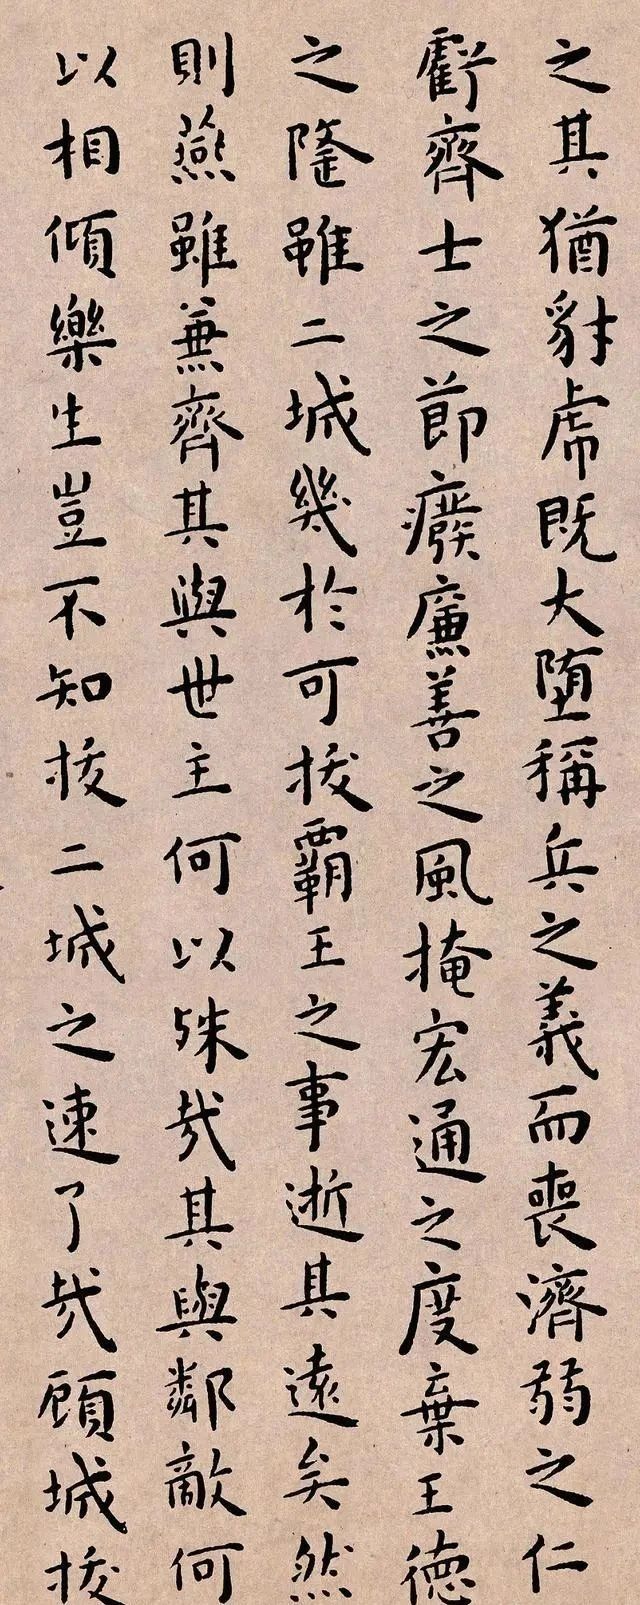 之其猶豺虎既大堕稱兵之義而喪濟弱之仁
虧齊士之節癈廉善之風掩宏通之度棄王德
之隆雖二城幾於可拔霸王之事逝其遠矣然
則燕雖兼齊其與世主何以殊哉其與鄰敵何
以相傾樂生豈不知拔二城之速了哉顧城拔